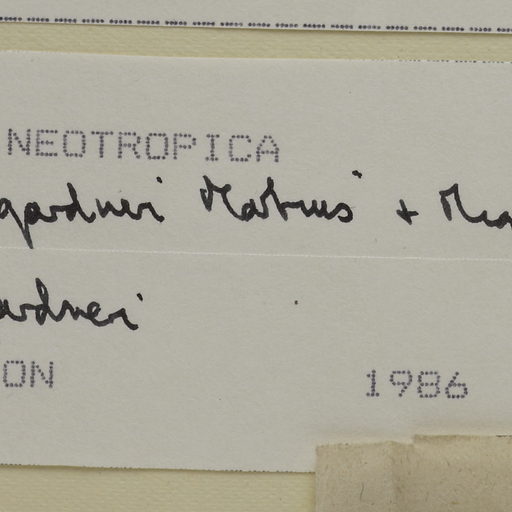 NEOTROPICA
gardneri Martius +
ardneri
ON 1986